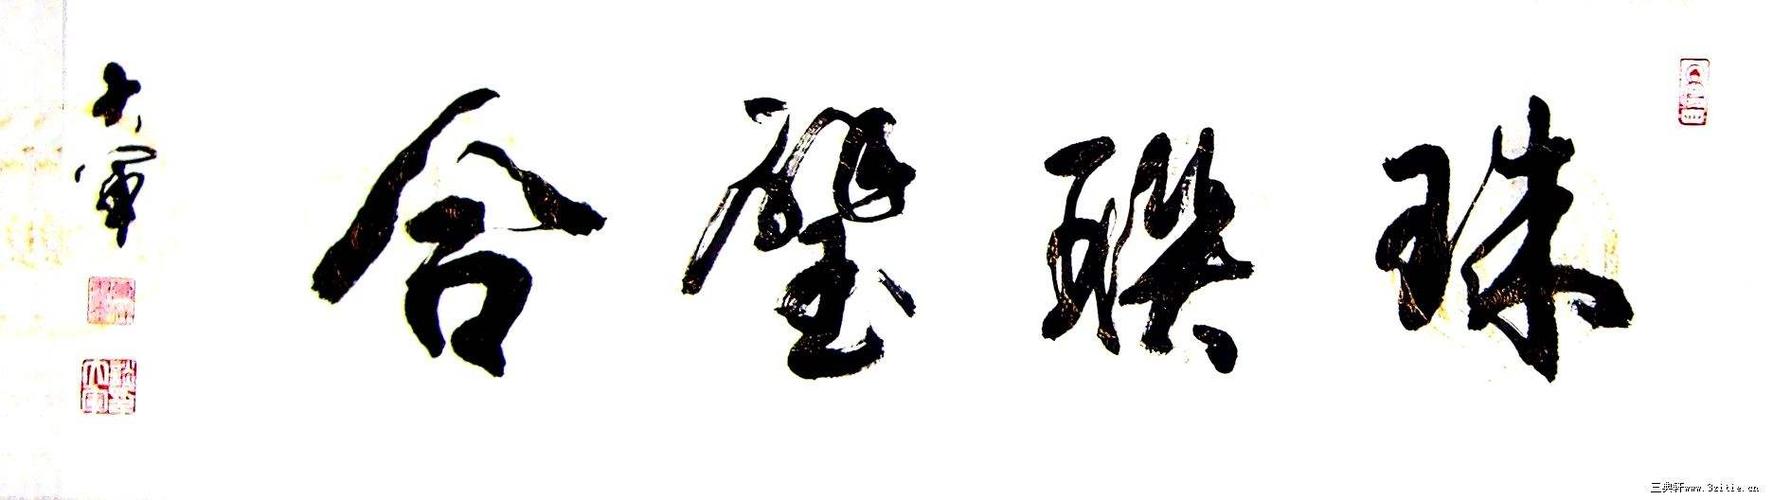 珠联璧合
大军
三典轩www.3zitie.cn